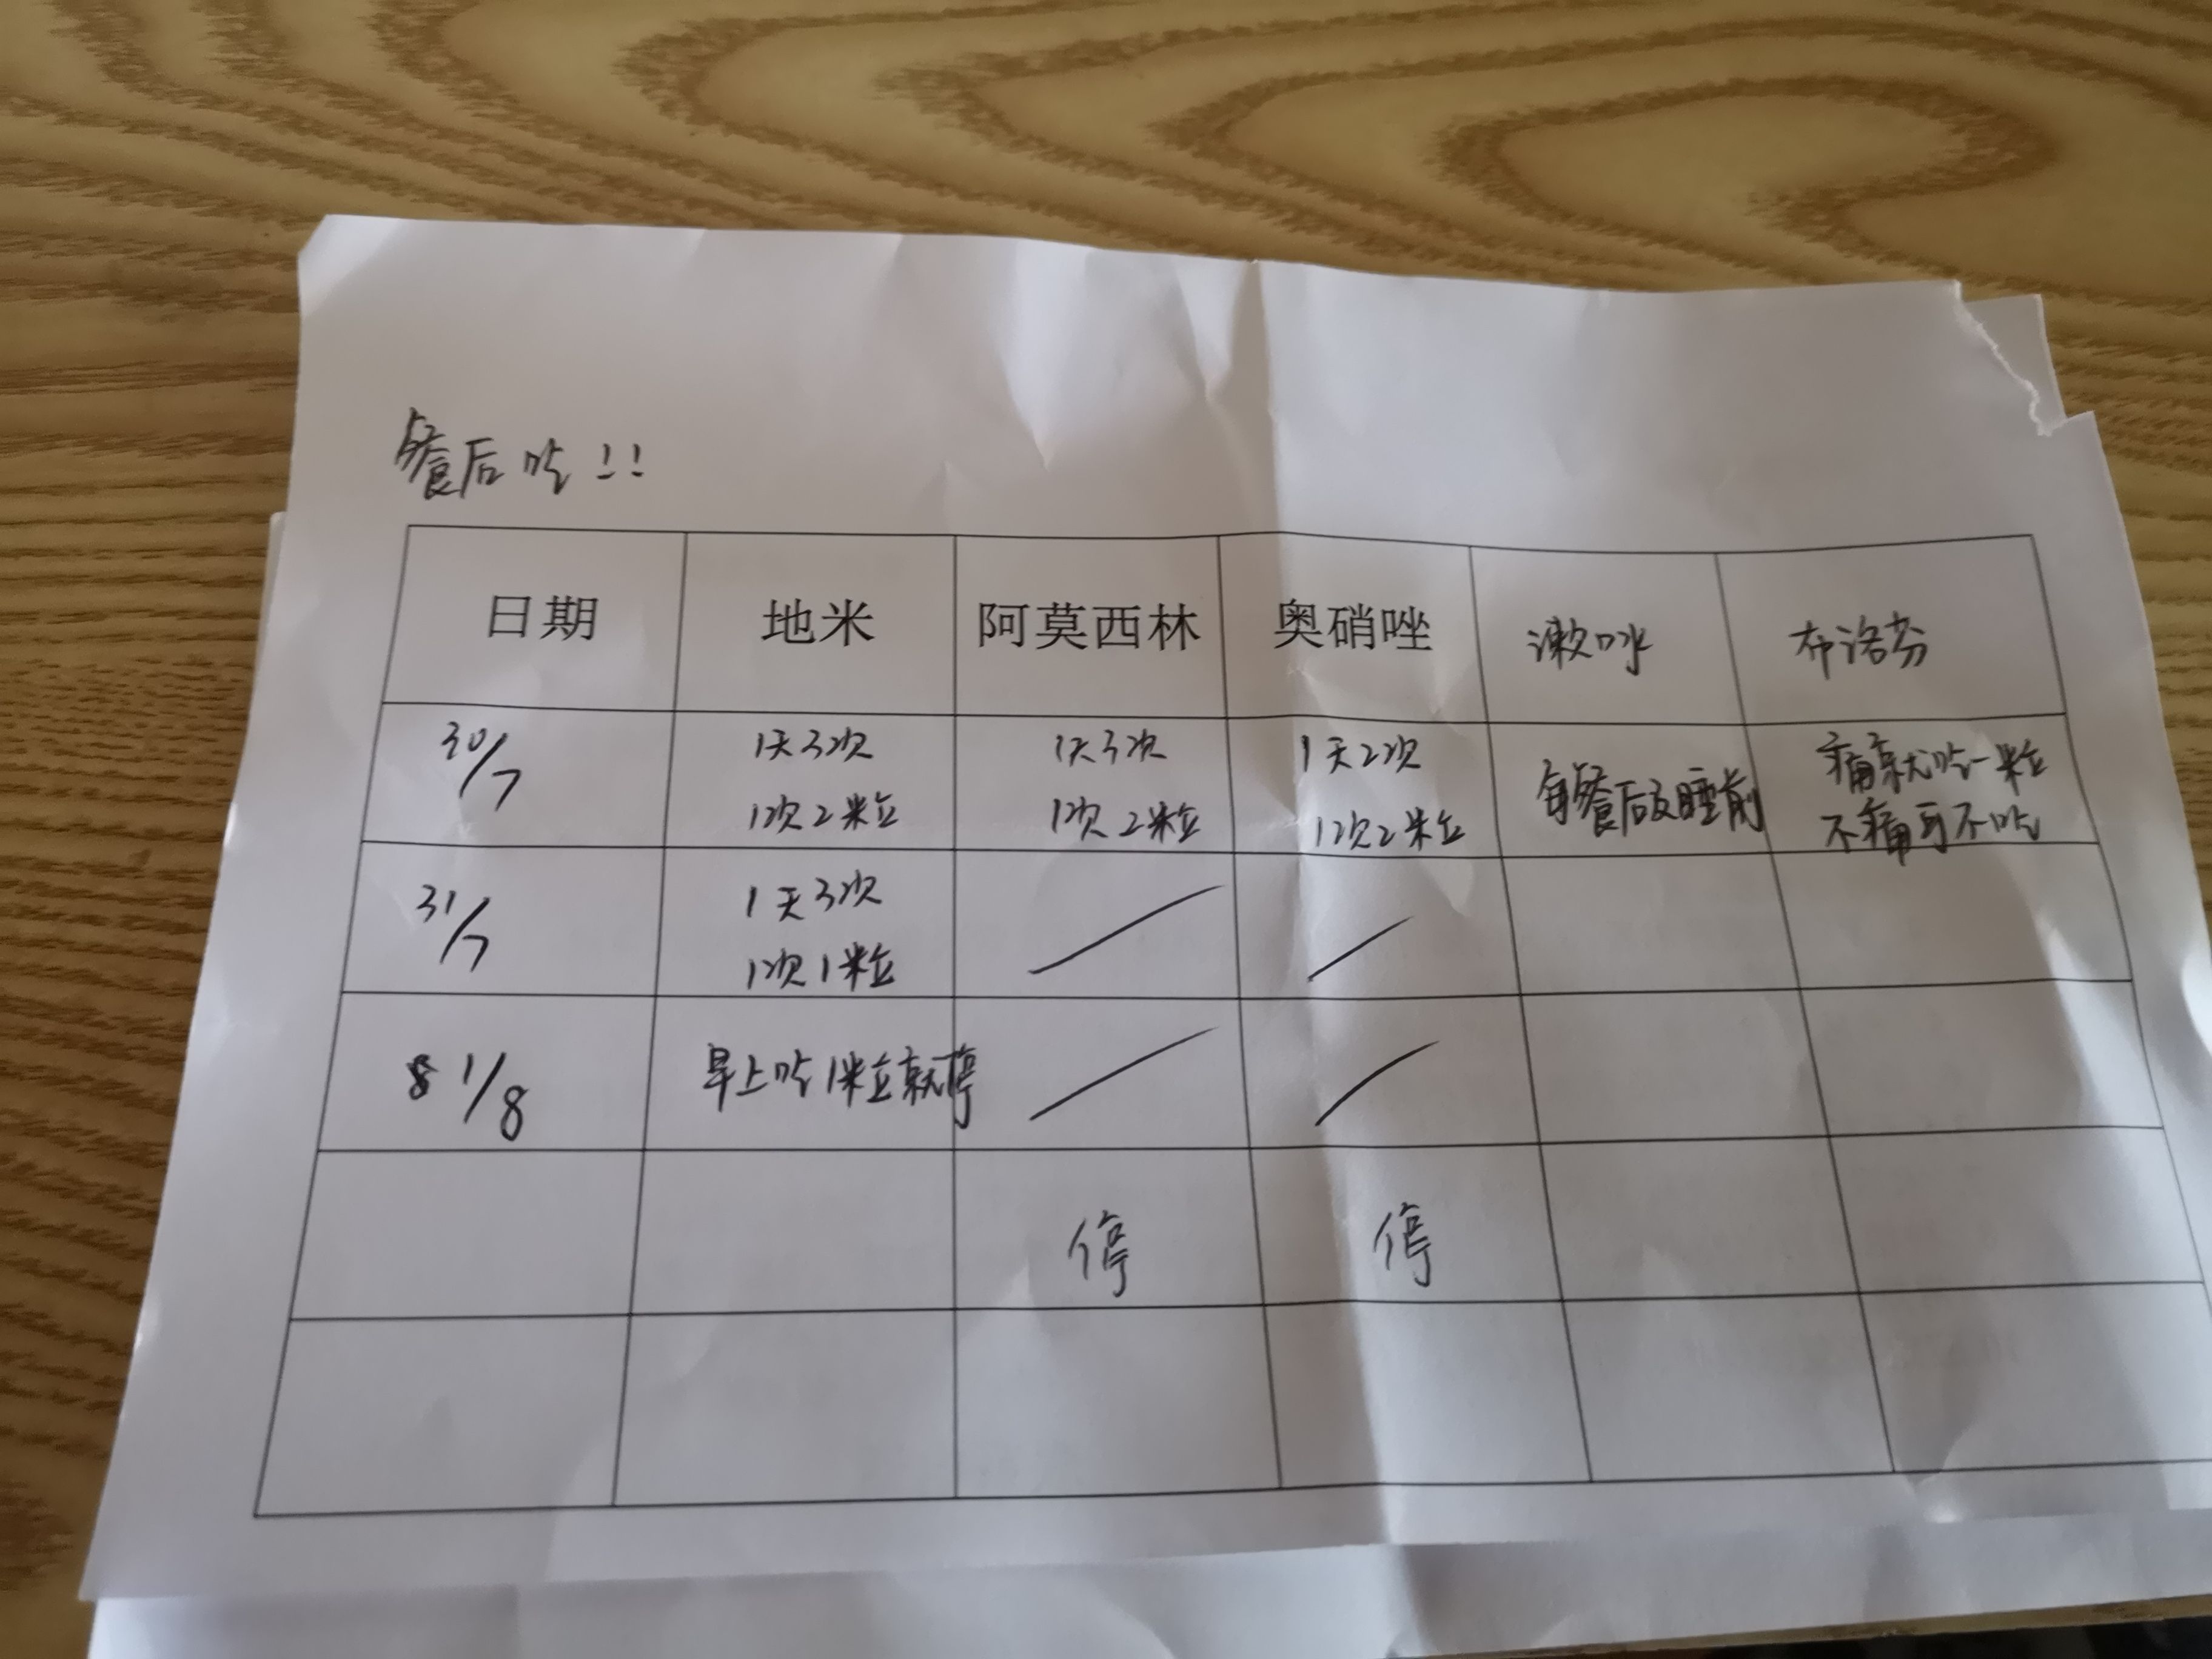 餐后吃！！
日期 地米 阿莫西林 奥硝唑 漱口水 布洛芬
30/7 1天3次 1天3次 1天2次 每餐后及睡前 痛就吃一粒
1次2粒 1次2粒 1次2粒 不痛可不吃
31/7 1天3次
1次1粒
1/8 早上吃1粒就停
停 停